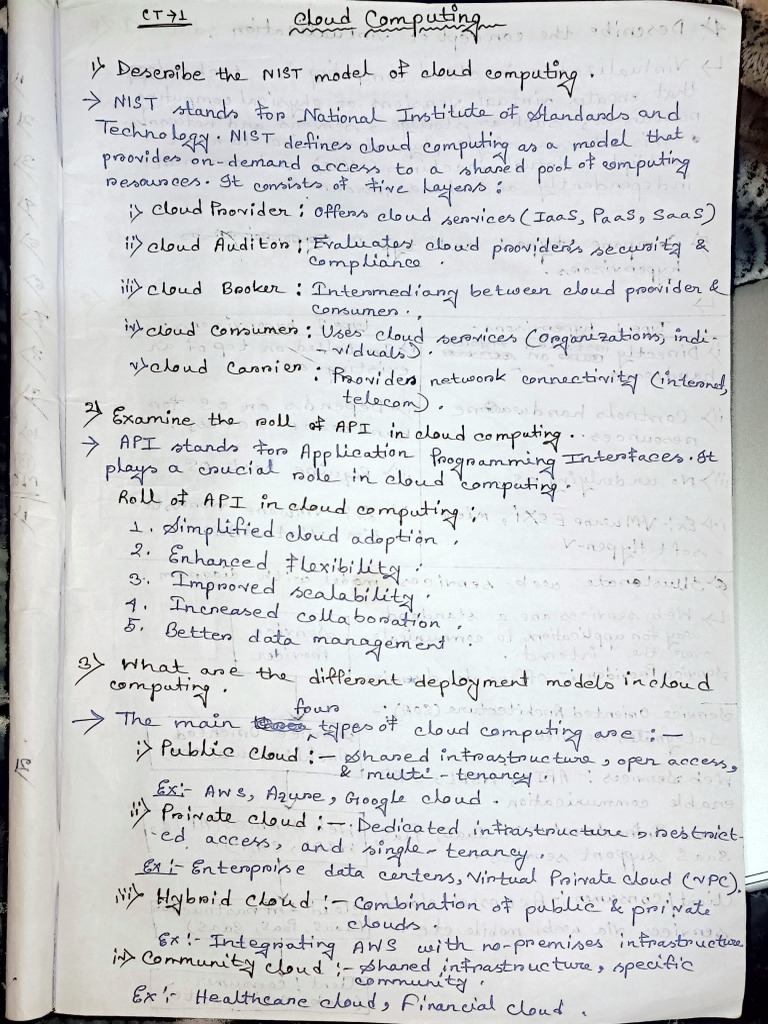 CT→1
Cloud Computing
1) Describe the NIST model of cloud computing.
→ NIST stands for National Institute of Standards and
Technology. NIST defines cloud computing as a model that
provides on-demand access to a shared pool of computing
resources. It consists of five layers:
i) Cloud Provider: Offers cloud services (IaaS, PaaS, SaaS)
ii) cloud Auditor: Evaluates cloud provider's security &
compliance.
iii) cloud Broker: Intermediary between cloud provider &
consumer.
iv) cloud consumer: Uses cloud services (organizations, indi-
-viduals).
v) cloud Carrier: Provides network connectivity (internet,
telecom).
2) Examine the roll of API in cloud computing.
→ API stands for Application Programming Interfaces. It
plays a crucial role in cloud computing.
Roll of API in cloud computing:
1. Simplified cloud adoption.
2. Enhanced flexibility.
3. Improved scalability.
4. Increased collaboration.
5. Better data management.
3) What are the different deployment models in cloud
computing.
→ The main four types of cloud computing are :—
i) Public cloud :— Shared infrastructure, open access,
& multi-tenancy.
Ex:- AWS, Azure, Google cloud.
ii) Private cloud :— Dedicated infrastructure, restrict-
-ed access, and single-tenancy.
Ex:- Enterprise data centers, Virtual Private cloud (VPC).
iii) Hybrid cloud :— Combination of public & private
clouds
Ex:- Integrating AWS with no-premises infrastructure
iv) Community cloud :— Shared infrastructure, specific
community.
Ex:- Healthcare cloud, Financial cloud.